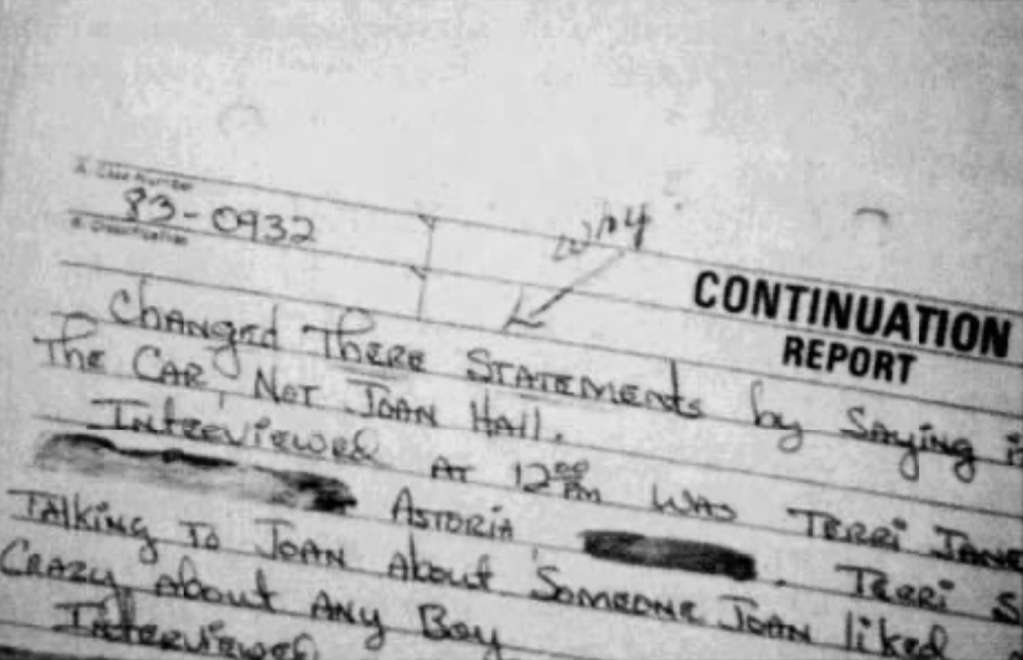 A. Case Number
83-0932
B. Classification
Why
CONTINUATION
REPORT
Changed There Statements by Saying
The Car, Not Joan Hall.
Interviewed At 12:00 pm Was Terri Jane
Astoria, . Terri
Talking To Joan About Someone Joan liked
Crazy About Any Boy
Interviewed